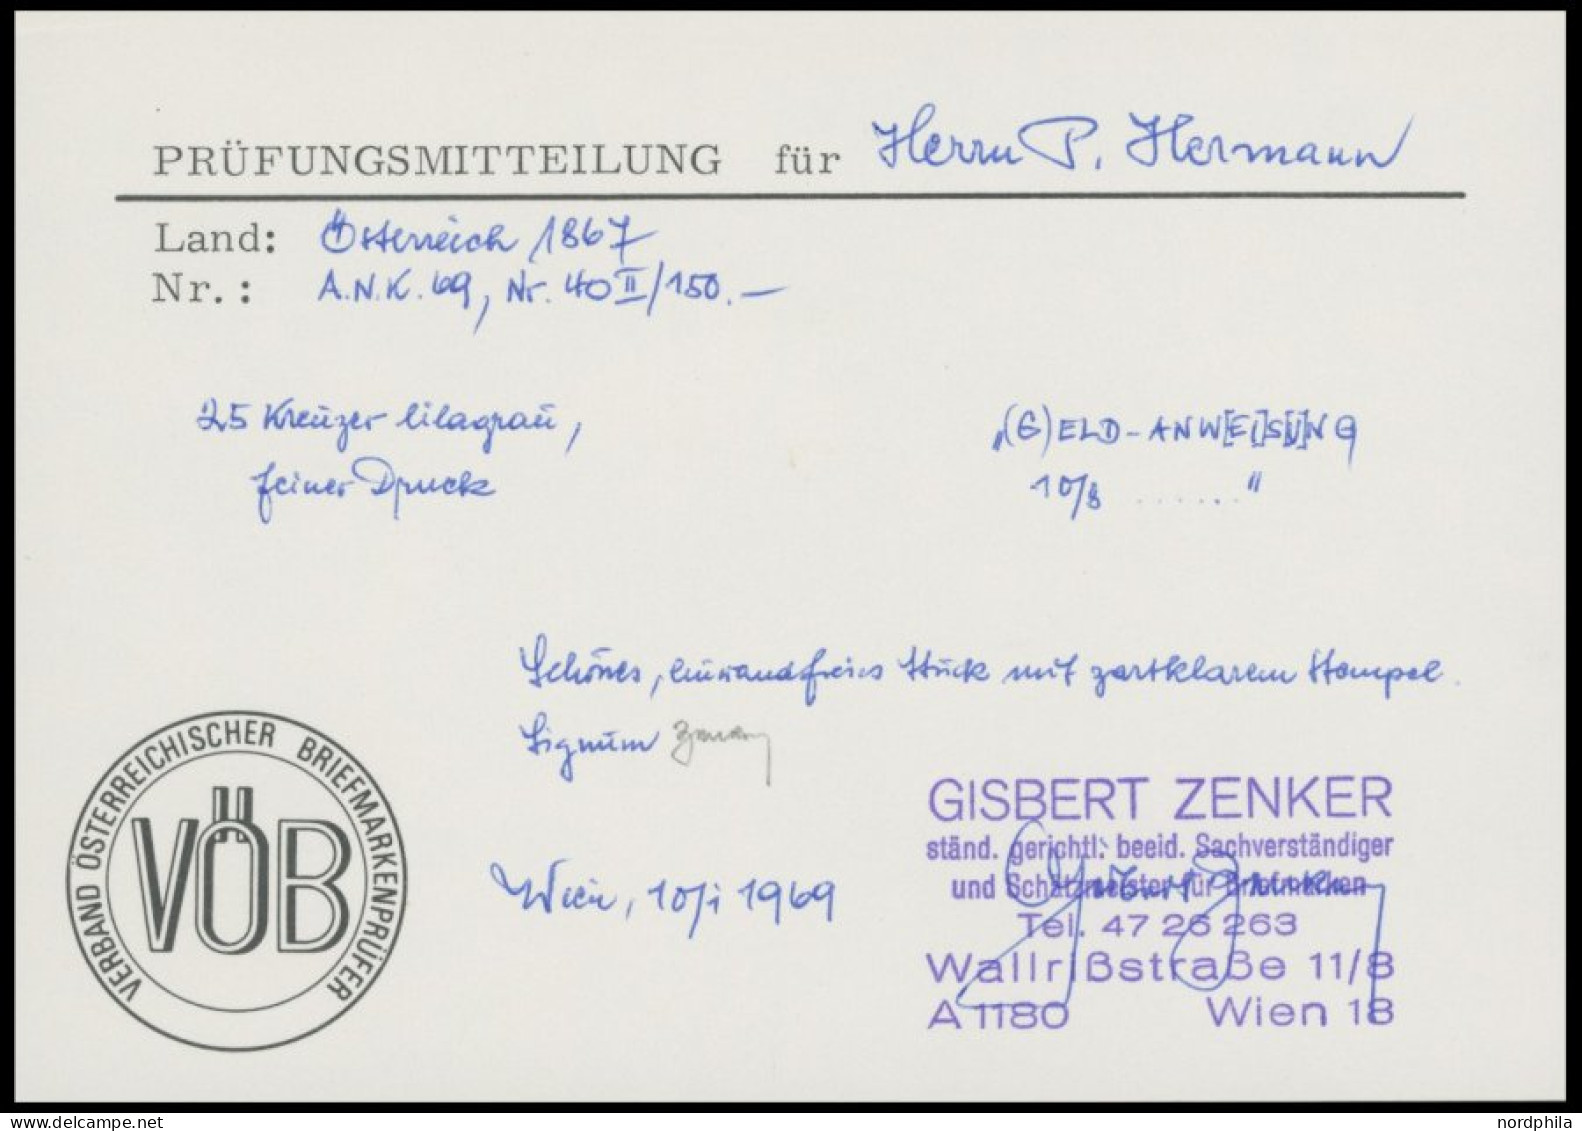 PRÜFUNGSMITTEILUNG für Herrn P. Hermann
Land: Österreich 1867
Nr.: A.N.K. 69, Nr. 40 II/150.—
25 Kreuzer lilagrau,
feiner Druck
„(G)ELD-ANW[EI]S[U]NG
10/8 ......"
Schönes, einwandfreies Stück mit zartklarem Stempel.
Signum
Wien, 10/i 1969
VERBAND ÖSTERREICHISCHER BRIEFMARKENPRÜFER
VÖB
GISBERT ZENKER
ständ. gerichtl. beeid. Sachverständiger
und Schätzmeister für Briefmarken
Tel. 47 26 263
Wallrißstraße 11/8
A 1180 Wien 18
nordphila